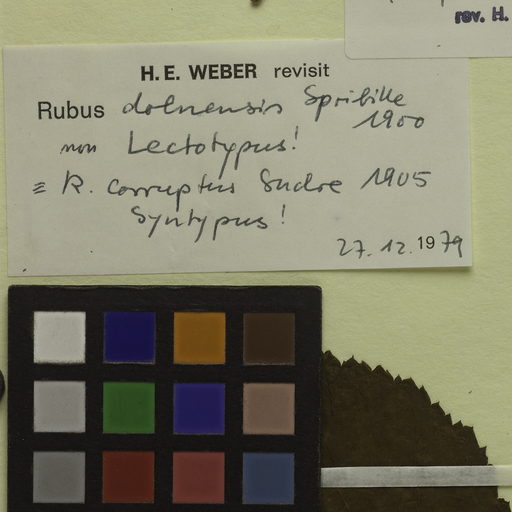 rev. H.
H. E. WEBER revisit
Rubus dolnensis Spribille
1900
non Lectotypus!
≡ R. corruptus Sudre 1905
Syntypus!
27. 12. 1979